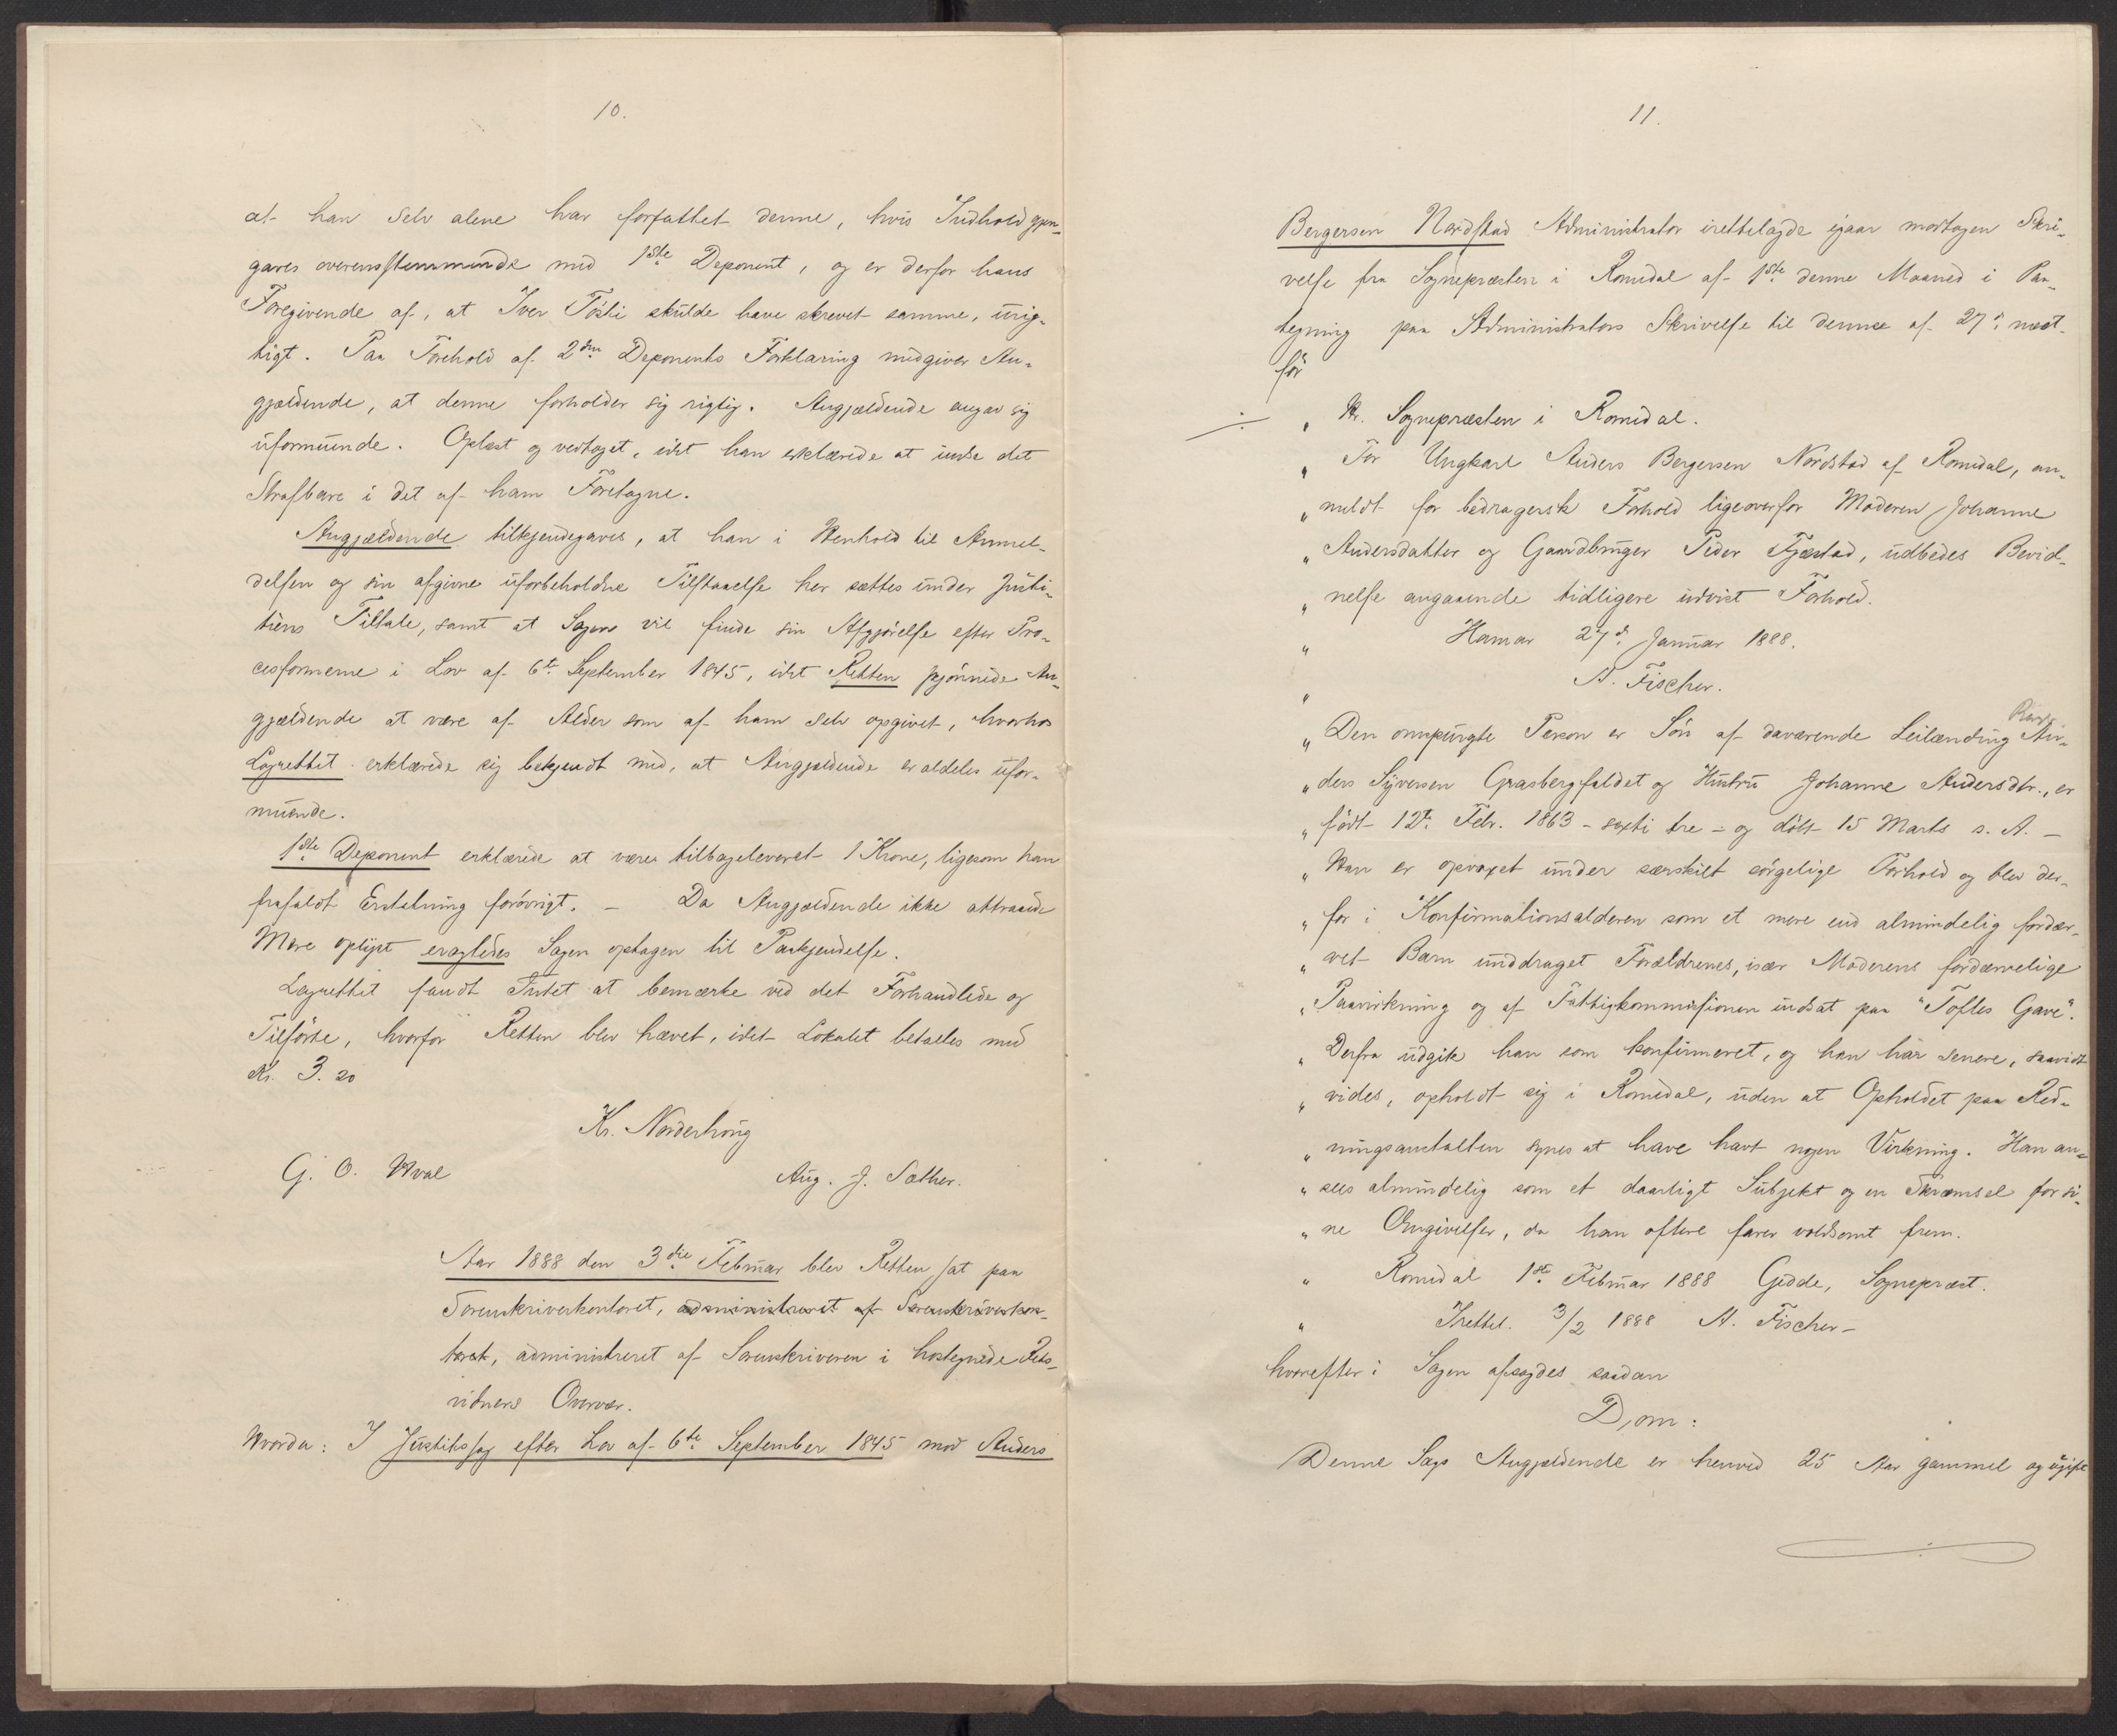 10.
at han selv alene har forfattet denne, hvis Indhold gjen-
gaves overensstemmende med 1ste Deponent, og er derfor hans
Foregivende af, at Iver Tosti skulde have skrevet samme, urig-
tigt. Paa Forehold af 2den Deponents Forklaring medgiver An-
gjældende, at denne forholder sig rigtig. Angjældende angav sig
uformuende. Oplæst og vedtaget, idet han erklærede at indse det
Strafbare i det af ham Foretagne.
Angjældende tilkjendegaves, at han i Henhold til Anmel-
delsen og sin afgivne uforbeholdne Tilstaaelse her sættes under Justi-
tiens Tiltale, samt at Sagen vil finde sin Afgjørelse efter Pro-
cesformerne i Lov af 6te September 1845, idet Retten skjønnede An-
gjældende at være af Alder som af ham selv opgivet, hvorhos
Lagrettet erklærede sig bekjendt med, at Angjældende er aldeles ufor-
muende.
1ste Deponent erklærede at være tilbageleveret 1 Krone, ligesom han
frafaldt Erstatning forøvrigt. – Da Angjældende ikke attraaede
Mere oplyst eragtedes Sagen optagen til Paakjendelse.
Lagrettet fandt Intet at bemærke ved det Forhandlede og
Tilførte, hvorfor Retten blev hævet, idet Lokalet betales med
Kr. 3.20
Kr. Norderhoug
G. O. Hval Aug. J. Sæther.
Aar 1888 den 3die Februar blev Retten sat paa
Sorenskriverkontoret, administreret af Sorenskriverkon-
toret, administreret af Sorenskriveren i hostegnede Rets-
vidners Overvær.
Hvorda: I Justitssag efter Lov af 6te September 1845 mod Anders
11.
Bergersen Nordstad Administrator irettelagde igaar modtagen Skri-
velse fra Sognepræsten i Romedal af 1ste denne Maaned i Paa-
tegning paa Administrators Skrivelse til denne af 27d næst-
før
÷ „ Hr. Sognepræsten i Romedal.
„ For Ungkarl Anders Bergersen Nordstad af Romedal, an-
„ meldt for bedragersk Forhold ligeoverfor Moderen Johanne
„ Andersdatter og Gaardbruger Peder Fjæstad, udbedes Bevid-
„ nelse angaaende tidligere udvist Forhold.
„ Hamar 27d Januar 1888.
„ A. Fischer.
„ Den omspurgte Person er Søn af daværende Leilænding An-
„ ders Syversen Grasbergfaldet og Hustru Johanne Andersdtr., er
„ født 12te Febr. 1863 – sexti tre – og døbt 15 Marts s. A. –
„ Han er opvoxet under særskilt sørgelige Forhold og blev der-
„ for i Konfirmationsalderen som et mere end almindelig fordær-
„ vet Barn unddraget Forældrenes, især Moderens fordærvelige
„ Paavirkning og af Fattigkommissionen indsat paa "Toftes Gave".
„ Derfra udgik han som konfirmeret, og han har senere, saavidt
„ vides, opholdt sig i Romedal, uden at Opholdet paa Red-
„ ningsanstalten synes at have havt nogen Virkning. Han an-
„ sees almindelig som et daarligt Subjekt og en Skræmsel for si-
„ ne Omgivelser, da han oftere farer voldsomt frem.
„ Romedal 1ste Februar 1888 Gedde, Sognepræst.
„ Irettel. 3/2 1888 A. Fischer –
hvorefter i Sagen afsagdes saadan
Dom:
Denne Sags Angjældende er henved 25 Aar gammel og ugift